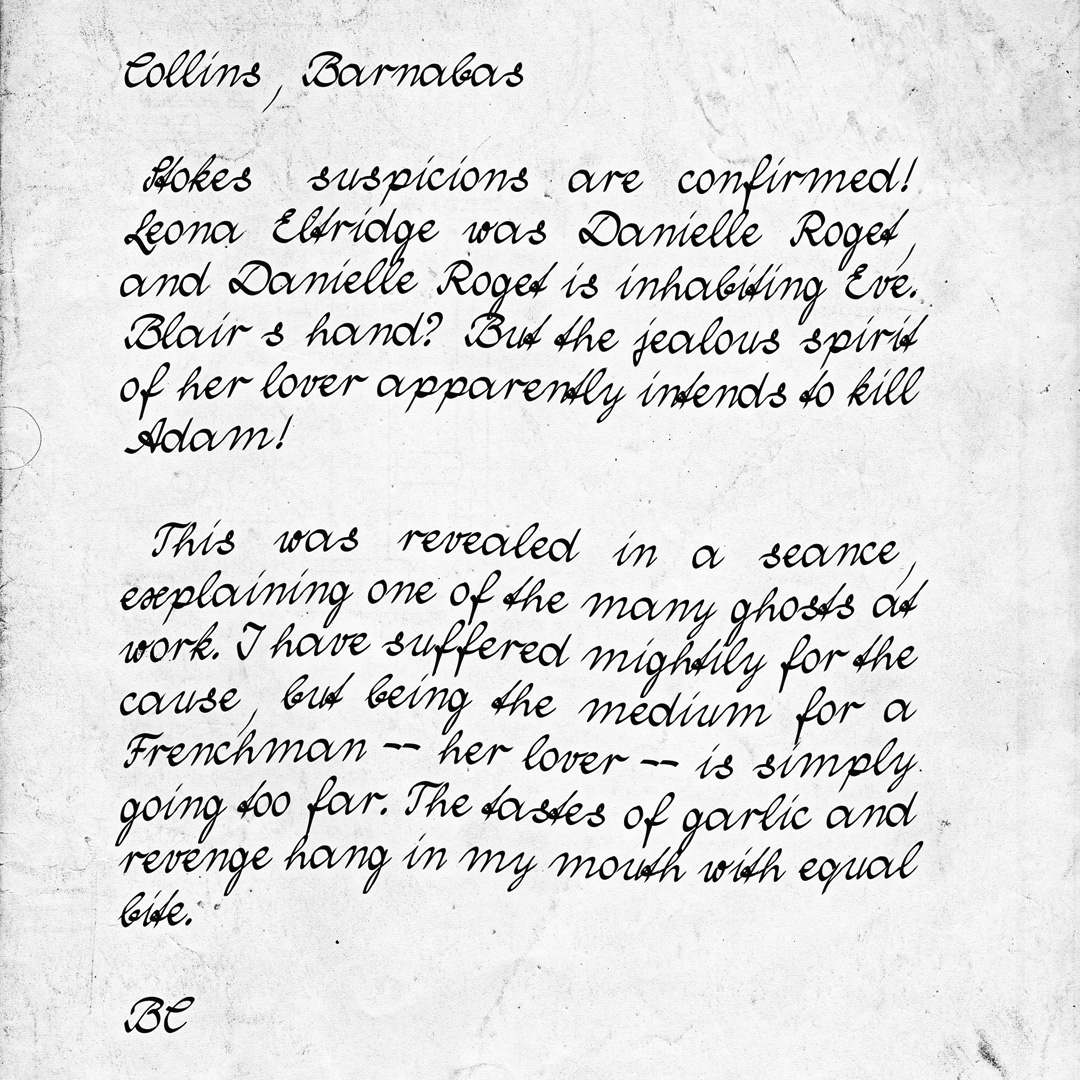 Collins, Barnabas
Stokes suspicions are confirmed!
Leona Eltridge was Danielle Roget,
and Danielle Roget is inhabiting Eve.
Blair s hand? But the jealous spirit
of her lover apparently intends to kill
Adam!
This was revealed in a seance,
explaining one of the many ghosts at
work. I have suffered mightily for the
cause, but being the medium for a
Frenchman -- her lover -- is simply
going too far. The tastes of garlic and
revenge hang in my mouth with equal
bite.
BC